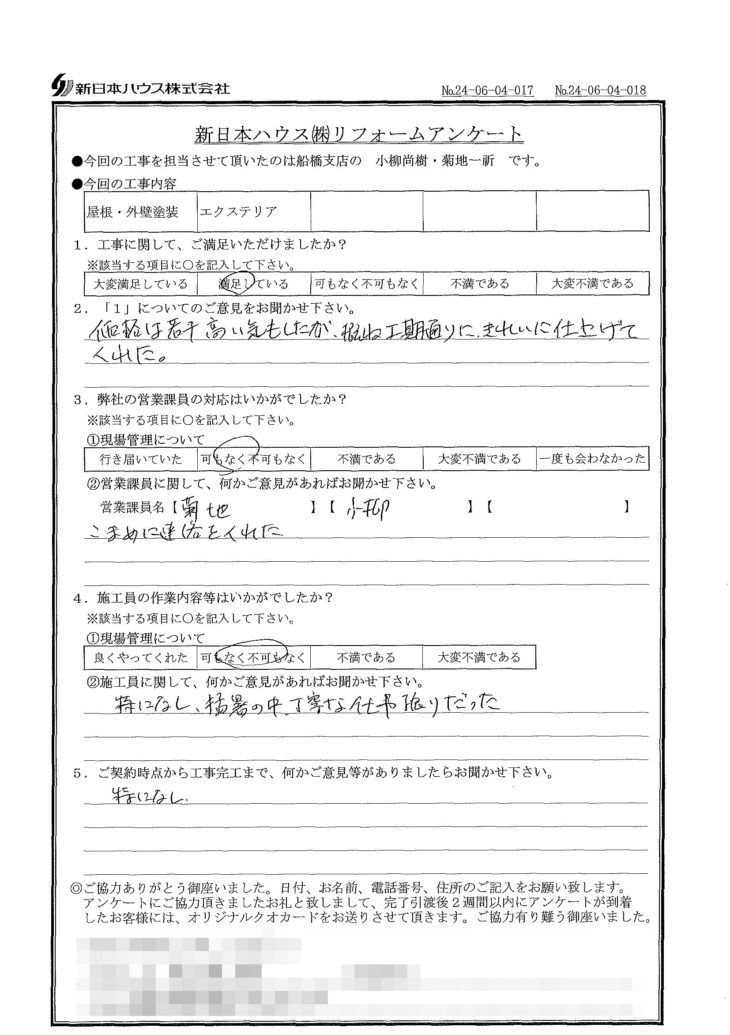 新日本ハウス株式会社
No.24-06-04-017 No.24-06-04-018
新日本ハウス㈱リフォームアンケート
●今回の工事を担当させて頂いたのは船橋支店の 小柳尚樹・菊地一祈 です。
●今回の工事内容
屋根・外壁塗装 エクステリア
1．工事に関して、ご満足いただけましたか？
※該当する項目に○を記入して下さい。
大変満足している 満足している 可もなく不可もなく 不満である 大変不満である
2．「1」についてのご意見をお聞かせ下さい。
価格は若干高い気もしたが、概ね工期通りに、きれいに仕上げて
くれた。
3．弊社の営業課員の対応はいかがでしたか？
※該当する項目に○を記入して下さい。
①現場管理について
行き届いていた 可もなく不可もなく 不満である 大変不満である 一度も会わなかった
②営業課員に関して、何かご意見があればお聞かせ下さい。
営業課員名【菊地 】【 小柳 】【 】
こまめに連絡をくれた
4．施工員の作業内容等はいかがでしたか？
※該当する項目に○を記入して下さい。
①現場管理について
良くやってくれた 可もなく不可もなく 不満である 大変不満である
②施工員に関して、何かご意見があればお聞かせ下さい。
特になし、猛暑の中、丁寧な仕事振りだった
5．ご契約時点から工事完工まで、何かご意見等がありましたらお聞かせ下さい。
特になし
◎ご協力ありがとう御座いました。日付、お名前、電話番号、住所のご記入をお願い致します。
アンケートにご協力頂きましたお礼と致しまして、完了引渡後２週間以内にアンケートが到着
したお客様には、オリジナルクオカードをお送りさせて頂きます。ご協力有り難う御座いました。